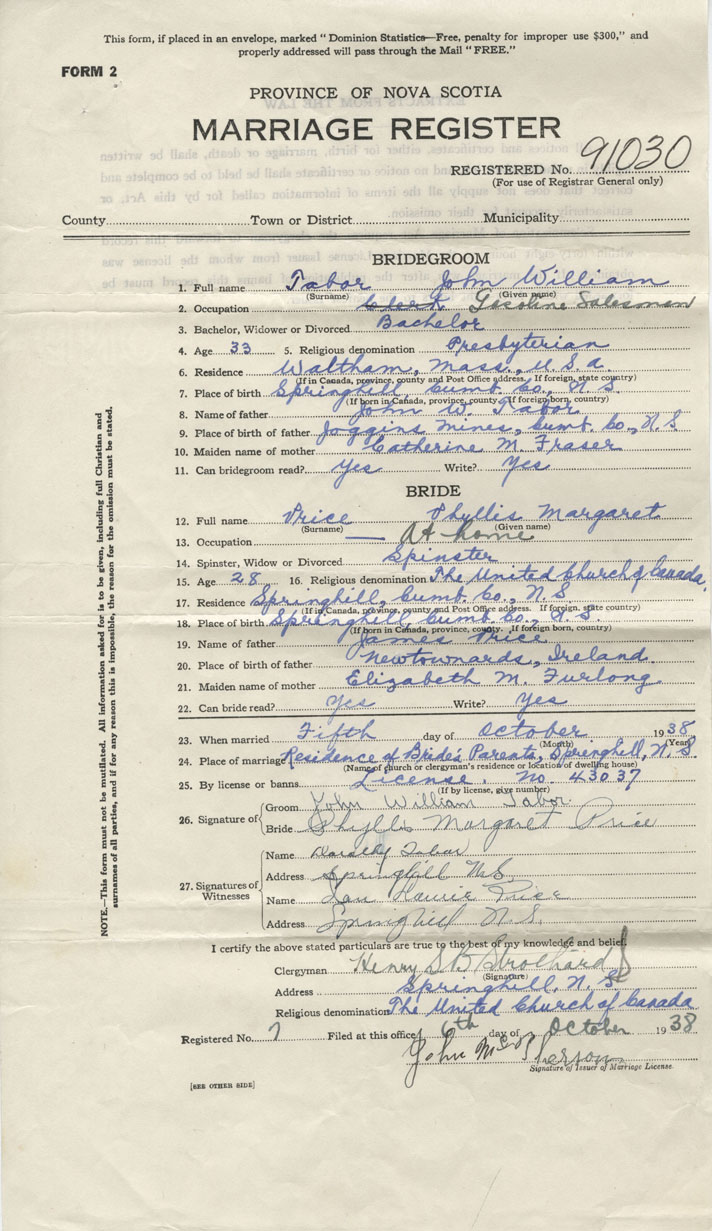 This form, if placed in an envelope, marked "Dominion Statistics—Free, penalty for improper use $300," and
properly addressed will pass through the Mail "FREE."
FORM 2
PROVINCE OF NOVA SCOTIA
MARRIAGE REGISTER
REGISTERED No. 91030
(For use of Registrar General only)
County Town or District Municipality
BRIDEGROOM
1. Full name Tabor John William
(Surname) (Given name)
2. Occupation Clerk Gasoline Salesman
3. Bachelor, Widower or Divorced Bachelor
4. Age 33 5. Religious denomination Presbyterian
6. Residence Waltham, Mass., U.S.a.
(If in Canada, province, county and Post Office address. If foreign, state country)
7. Place of birth Springhill, Cumb. Co., N.S.
(If born in Canada, province, county. If foreign born, country)
8. Name of father John W. Tabor
9. Place of birth of father Joggins Mines, Cumb. Co., N.S.
10. Maiden name of mother Catherine M. Fraser
11. Can bridegroom read? Yes Write? Yes
BRIDE
12. Full name Price Phyllis Margaret
(Surname) (Given name)
13. Occupation — At home
14. Spinster, Widow or Divorced Spinster
15. Age 28 16. Religious denomination The United Church of Canada,
17. Residence Springhill, Cumb. Co., N.S.
(If in Canada, province, county and Post Office address. If foreign, state country)
18. Place of birth Springhill, Cumb. Co., N.S.
(If born in Canada, province, county. If foreign born, country)
19. Name of father James Price
20. Place of birth of father Newtownards, Ireland.
21. Maiden name of mother Elizabeth M. Furlong
22. Can bride read? Yes Write? Yes
23. When married Fifth day of October 1938
(Month) (Year)
24. Place of marriage Residence of Bride's Parents, Springhill, N.S.
(Name of church or clergyman's residence or location of dwelling house)
25. By license or banns License. No. 43037
(If by license, give number)
26. Signature of
Groom John William Tabor.
Bride Phyllis Margaret Price
27. Signatures of Witnesses
Name Dorothy Tabor
Address Springhill N.S.
Name Price
Address Springhill N.S.
I certify the above stated particulars are true to the best of my knowledge and belief.
Clergyman Henry S.B. Strothard
(Signature)
Address Springhill, N.S.
Religious denomination The United Church of Canada
Registered No. 7 Filed at this office 6th day of October 1938
John McPherson
Signature of Issuer of Marriage License.
[SEE OTHER SIDE]
NOTE.—This form must not be mutilated. All information asked for is to be given, including full Christian and
surnames of all parties, and if for any reason this is impossible, the reason for the omission must be stated.